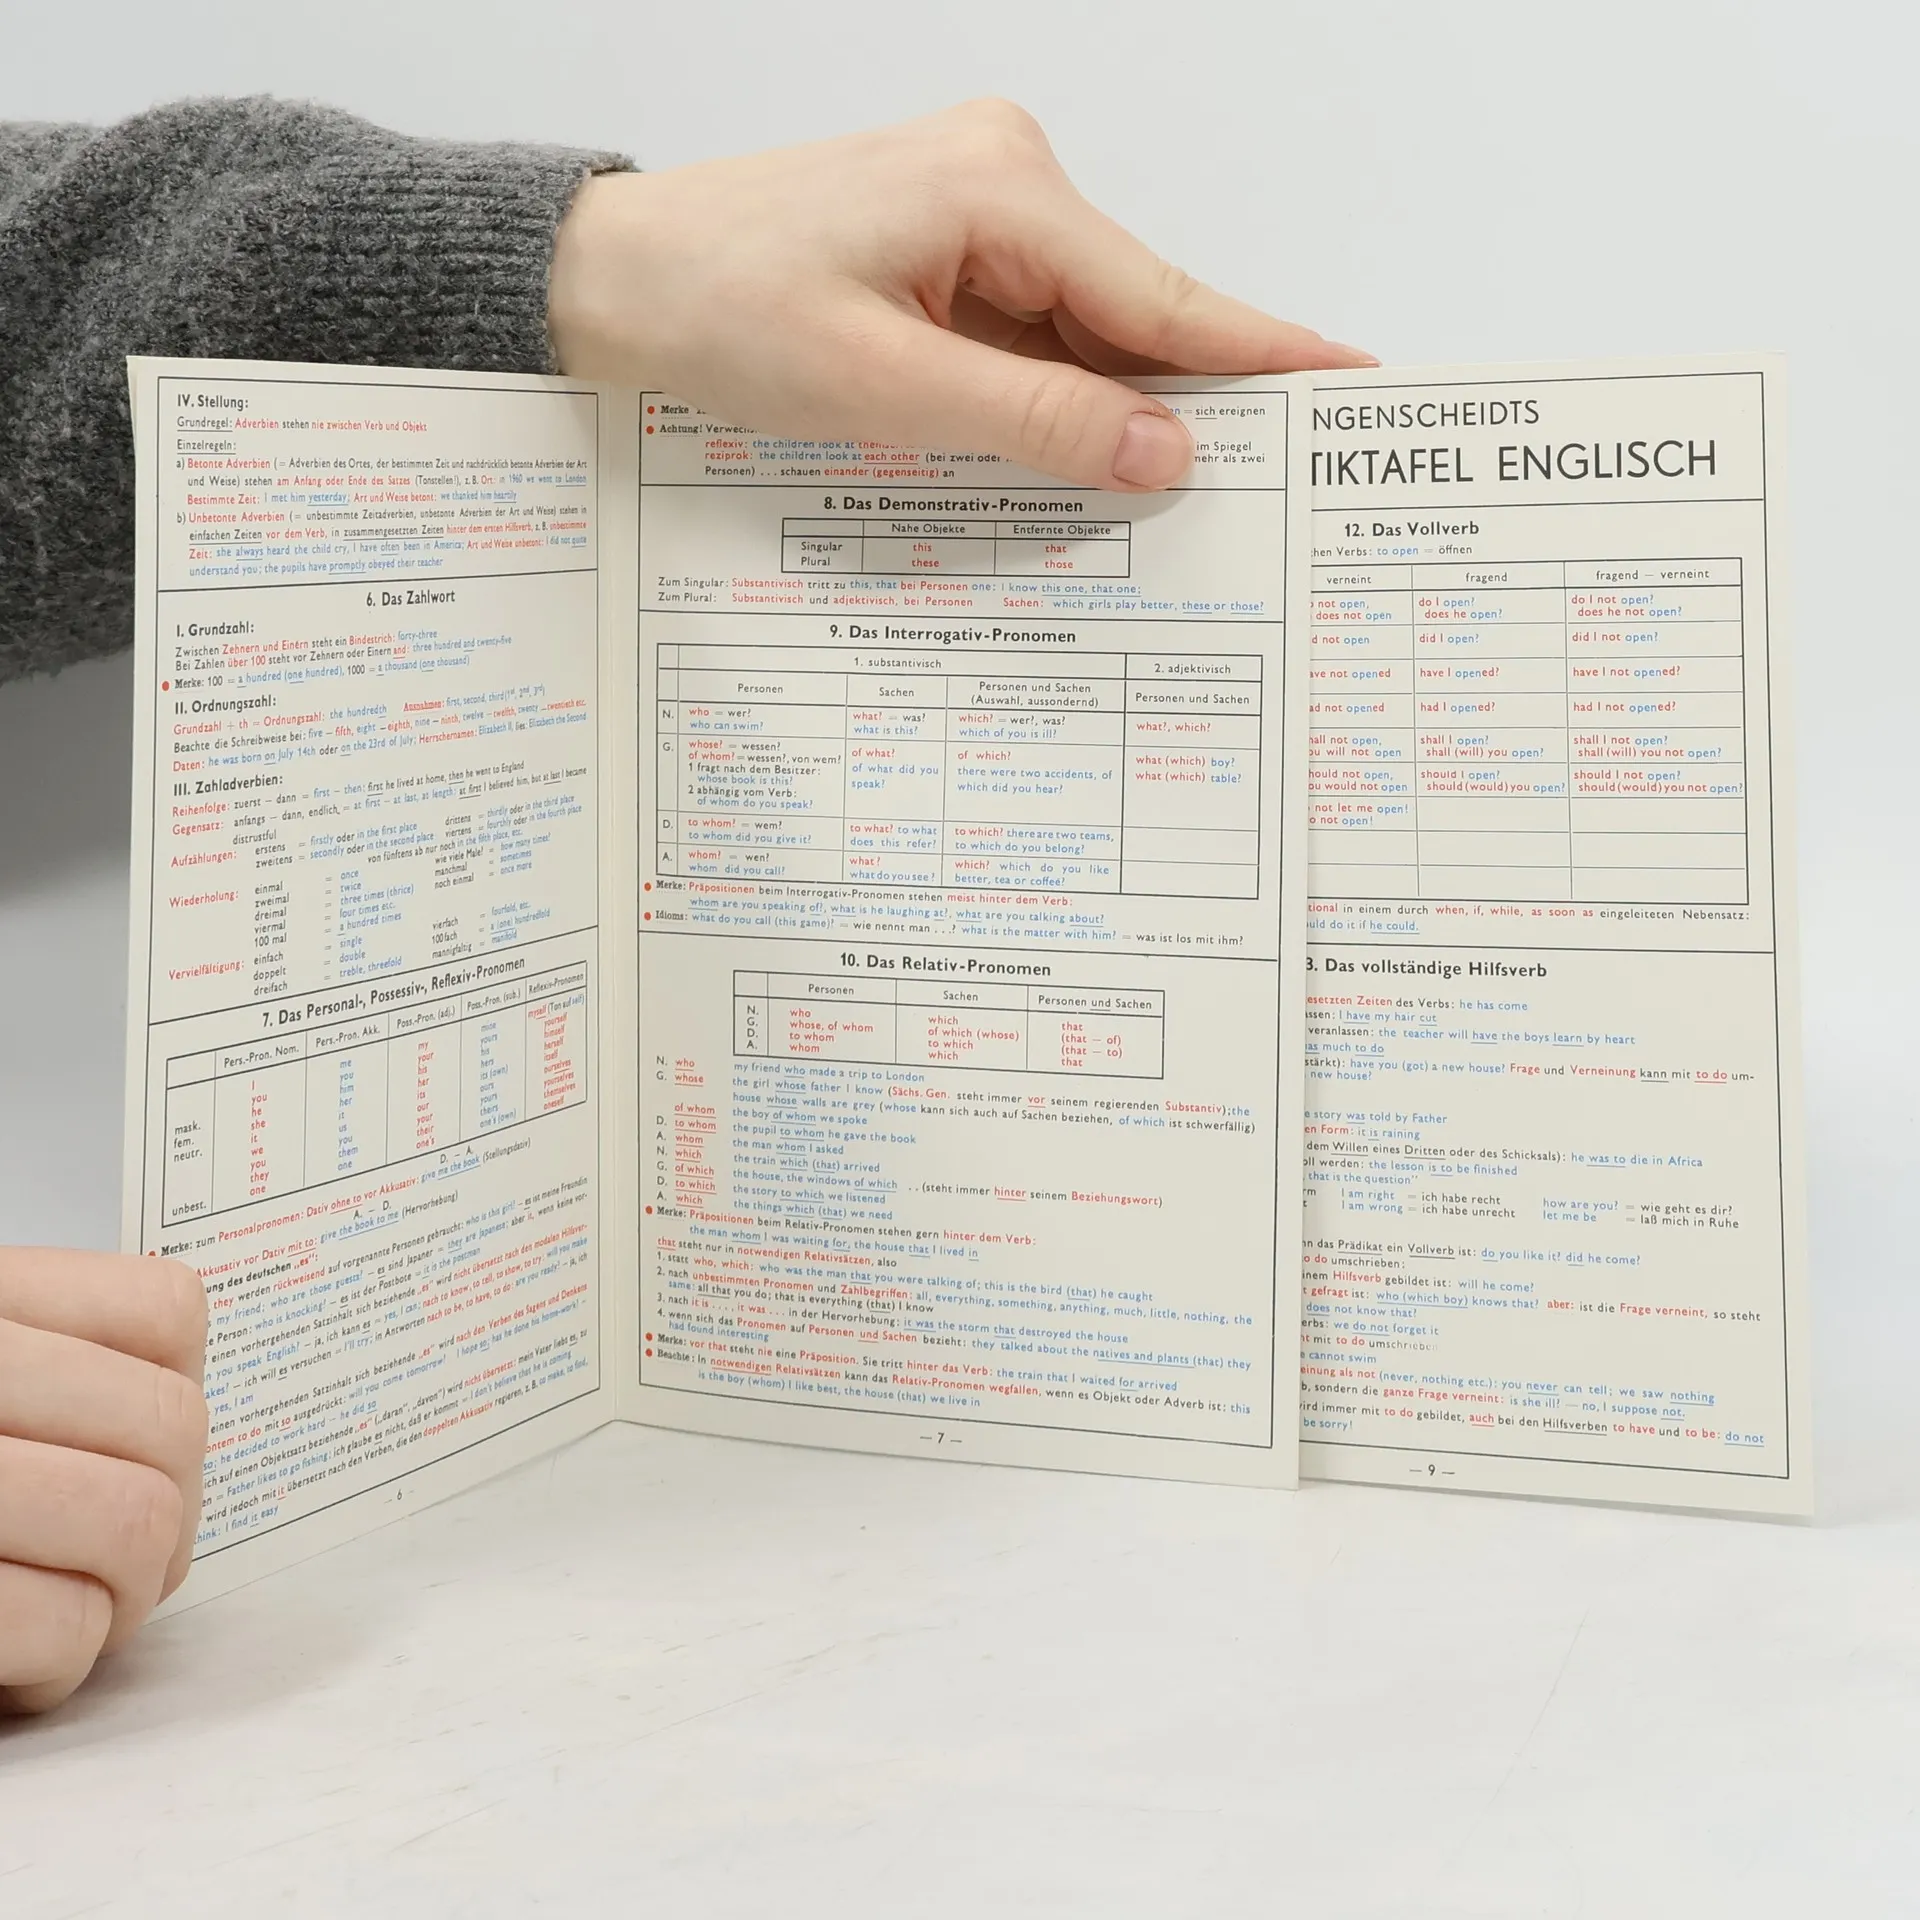 IV. Stellung:
Grundregel: Adverbien stehen nie zwischen Verb und Objekt
Einzelregeln:
a) Betonte Adverbien (= Adverbien des Ortes, der bestimmten Zeit und nachdrücklich betonte Adverbien der Art
und Weise) stehen am Anfang oder Ende des Satzes (Tonstellen!), z. B. Ort: in 1960 we went to London
Bestimmte Zeit: I met him yesterday; Art und Weise betont: we thanked him heartily
b) Unbetonte Adverbien (= unbestimmte Zeitadverbien, unbetonte Adverbien der Art und Weise) stehen in
einfachen Zeiten vor dem Verb, in zusammengesetzten Zeiten hinter dem ersten Hilfsverb, z. B. unbestimmte
Zeit: she always heard the child cry, I have often been in America; Art und Weise unbetont: I did not quite
understand you; the pupils have promptly obeyed their teacher
6. Das Zahlwort
I. Grundzahl:
Zwischen Zehnern und Einern steht ein Bindestrich: forty-three
Bei Zahlen über 100 steht vor Zehnern oder Einern and: three hundred and twenty-five
Merke: 100 = a hundred (one hundred), 1000 = a thousand (one thousand)
II. Ordnungszahl:
Grundzahl + th = Ordnungszahl: the hundredth Ausnahmen: first, second, third (1st, 2nd, 3rd)
Beachte die Schreibweise bei: five – fifth, eight – eighth, nine – ninth, twelve – twelfth, twenty – twentieth etc.
Daten: he was born on July 14th oder on the 23rd of July; Herrschernamen: Elizabeth II, lies: Elizabeth the Second
III. Zahladverbien:
Reihenfolge: zuerst – dann = first – then: first he lived at home, then he went to England
Gegensatz: anfangs – dann, endlich = at first – at last, at length: at first I believed him, but at last I became
distrustful
Aufzählungen: erstens = firstly oder in the first place drittens = thirdly oder in the third place
zweitens = secondly oder in the second place viertens = fourthly oder in the fourth place
von fünftens ab nur noch in the fifth place, etc.
Wiederholung: einmal = once wie viele Male? = how many times?
zweimal = twice manchmal = sometimes
dreimal = three times (thrice) noch einmal = once more
viermal = four times etc.
100 mal = a hundred times
Vervielfältigung: einfach = single vierfach = fourfold, etc.
doppelt = double 100fach = a (one) hundredfold
dreifach = treble, threefold mannigfaltig = manifold
7. Das Personal-, Possessiv-, Reflexiv-Pronomen
Pers.-Pron. Nom. Pers.-Pron. Akk. Poss.-Pron. (adj.) Poss.-Pron. (sub.) Reflexiv-Pronomen
I me my mine myself (Ton auf self)
you you your yours yourself
mask. he him his his himself
fem. she her her hers herself
neutr. it it its its (own) itself
we us our ours ourselves
you you your yours yourselves
they them their theirs themselves
unbest. one one one's one's (own) oneself
Merke: zum Personalpronomen: Dativ ohne to vor Akkusativ: D. – A. give me the book (Stellungsdativ)
Akkusativ vor Dativ mit to: A. – D. give the book to me (Hervorhebung)
ung des deutschen „es":
they werden rückweisend auf vorgenannte Personen gebraucht: who is this girl? – es ist meine Freundin
s my friend; who are those guests? – es sind Japaner = they are Japanese; aber it, wenn keine vor-
e Person: who is knocking? – es ist der Postbote = it is the postman
f einen vorhergehenden Satzinhalt sich beziehende „es" wird nicht übersetzt nach den modalen Hilfsver-
n you speak English? – ja, ich kann es = yes, I can; nach to know, to tell, to show, to try: will you make
akes? – ich will es versuchen = I'll try; in Antworten nach to be, to have, to do: are you ready? – ja, ich
yes, I am
einen vorhergehenden Satzinhalt sich beziehende „es" wird nach den Verben des Sagens und Denkens
ontem to do mit so ausgedrückt: will you come tomorrow? I hope so; has he done his home-work? –
so; he decided to work hard – he did so
ich auf einen Objektsatz beziehende „es" („daran", „davon") wird nicht übersetzt: mein Vater liebt es, zu
en = Father likes to go fishing; ich glaube es nicht, daß er kommt = I don't believe that he is coming
wird jedoch mit it übersetzt nach den Verben, die den doppelten Akkusativ regieren, z. B. to make, to find,
think: I find it easy
– 6 –
Merke
= sich ereignen
Achtung!
reflexiv: the children look at
im Spiegel
reziprok: the children look at each other (bei zwei oder
mehr als zwei
Personen) . . . schauen einander (gegenseitig) an
8. Das Demonstrativ-Pronomen
Nahe Objekte Entfernte Objekte
Singular this that
Plural these those
Zum Singular: Substantivisch tritt zu this, that bei Personen one: I know this one, that one;
Zum Plural: Substantivisch und adjektivisch, bei Personen Sachen: which girls play better, these or those?
9. Das Interrogativ-Pronomen
1. substantivisch 2. adjektivisch
Personen Sachen Personen und Sachen (Auswahl, aussondernd) Personen und Sachen
N. who = wer? what? = was? which? = wer?, was? what?, which?
who can swim? what is this? which of you is ill?
G. whose? = wessen? of what? of which? what (which) boy?
of whom? = wessen?, von wem? of what did you there were two accidents, of what (which) table?
1 fragt nach dem Besitzer: speak? which did you hear?
whose book is this?
2 abhängig vom Verb:
of whom do you speak?
D. to whom? = wem? to what? to what to which? there are two teams,
to whom did you give it? does this refer? to which do you belong?
A. whom? = wen? what? which? which do you like
whom did you call? what do you see? better, tea or coffee?
Merke: Präpositionen beim Interrogativ-Pronomen stehen meist hinter dem Verb:
whom are you speaking of?, what is he laughing at?, what are you talking about?
Idioms: what do you call (this game)? = wie nennt man . . .? what is the matter with him? = was ist los mit ihm?
10. Das Relativ-Pronomen
Personen Sachen Personen und Sachen
N. who which that
G. whose, of whom of which (whose) (that – of)
D. to whom to which (that – to)
A. whom which that
N. who my friend who made a trip to London
G. whose the girl whose father I know (Sächs. Gen. steht immer vor seinem regierenden Substantiv); the
house whose walls are grey (whose kann sich auch auf Sachen beziehen, of which ist schwerfällig)
of whom the boy of whom we spoke
D. to whom the pupil to whom he gave the book
A. whom the man whom I asked
N. which the train which (that) arrived
G. of which the house, the windows of which . . (steht immer hinter seinem Beziehungswort)
D. to which the story to which we listened
A. which the things which (that) we need
Merke: Präpositionen beim Relativ-Pronomen stehen gern hinter dem Verb:
the man whom I was waiting for, the house that I lived in
that steht nur in notwendigen Relativsätzen, also
1. statt who, which: who was the man that you were talking of; this is the bird (that) he caught
2. nach unbestimmten Pronomen und Zahlbegriffen: all, everything, something, anything, much, little, nothing, the
same: all that you do; that is everything (that) I know
3. nach it is . . . , it was . . . in der Hervorhebung: it was the storm that destroyed the house
4. wenn sich das Pronomen auf Personen und Sachen bezieht: they talked about the natives and plants (that) they
had found interesting
Merke: vor that steht nie eine Präposition. Sie tritt hinter das Verb: the train that I waited for arrived
Beachte: In notwendigen Relativsätzen kann das Relativ-Pronomen wegfallen, wenn es Objekt oder Adverb ist: this
is the boy (whom) I like best, the house (that) we live in
– 7 –
NGENSCHEIDTS
TIKTAFEL ENGLISCH
12. Das Vollverb
hen Verbs: to open = öffnen
verneint fragend fragend – verneint
not open, do I open? do I not open?
does not open does he open? does he not open?
d not open did I open? did I not open?
ave not opened have I opened? have I not opened?
ad not opened had I opened? had I not opened?
hall not open, shall I open? shall I not open?
ou will not open shall (will) you open? shall (will) you not open?
hould not open, should I open? should I not open?
ou would not open should (would) you open? should (would) you not open?
not let me open!
o not open!
tional in einem durch when, if, while, as soon as eingeleiteten Nebensatz:
uld do it if he could.
3. Das vollständige Hilfsverb
esetzten Zeiten des Verbs: he has come
ssen: I have my hair cut
veranlassen: the teacher will have the boys learn by heart
as much to do
stärkt): have you (got) a new house? Frage und Verneinung kann mit to do um-
new house?
e story was told by Father
en Form: it is raining
dem Willen eines Dritten oder des Schicksals): he was to die in Africa
oll werden: the lesson is to be finished
, that is the question"
rm I am right = ich habe recht how are you? = wie geht es dir?
t I am wrong = ich habe unrecht let me be = laß mich in Ruhe
nn das Prädikat ein Vollverb ist: do you like it? did he come?
o do umschrieben:
inem Hilfsverb gebildet ist: will he come?
t gefragt ist: who (which boy) knows that? aber: ist die Frage verneint, so steht
does not know that?
erbs: we do not forget it
ht mit to do umschrieben
e cannot swim
einung als not (never, nothing etc.): you never can tell; we saw nothing
b, sondern die ganze Frage verneint: is she ill? — no, I suppose not.
ird immer mit to do gebildet, auch bei den Hilfsverben to have und to be: do not
be sorry!
– 9 –